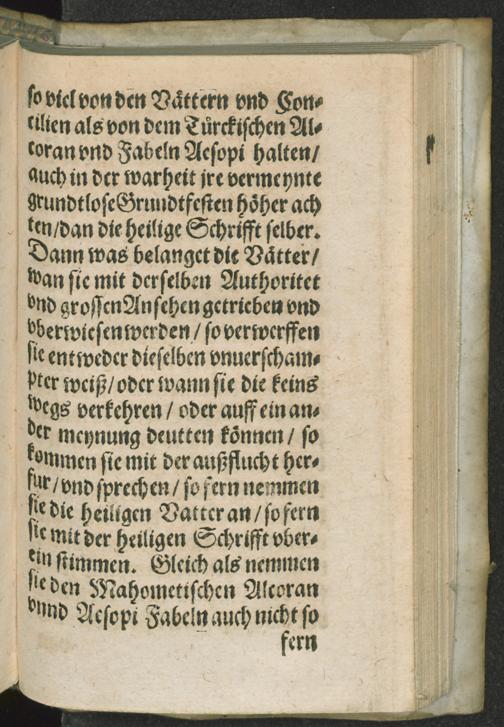 so viel von den Vättern vnd Con-
cilien als von dem Türckischen Al-
coran vnd Fabeln Aesopi halten/
auch in der warheit jre vermeynte
grundtlose Grundtfesten höher ach
ten/dan die heilige Schrifft selber.
Dann was belanget die Vätter/
wan sie mit derselben Authoritet
vnd grossen Ansehen getrieben vnd
vberwiesen werden / so verwerffen
sie entweder dieselben vnuerscham-
pter weiß/ oder wann sie die keins
wegs verkehren / oder auff ein an-
der meynung deutten können / so
kommen sie mit der außflucht her-
fur/ vnd sprechen / so fern nemmen
sie die heiligen Vatter an / so fern
sie mit der heiligen Schrifft vber-
ein stimmen. Gleich als nemmen
sie den Mahometischen Alcoran
vnnd Aesopi Fabeln auch nicht so
fern